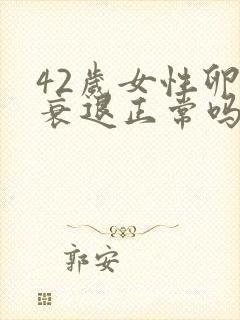 42岁女性卵
衰退正常吗
郭安